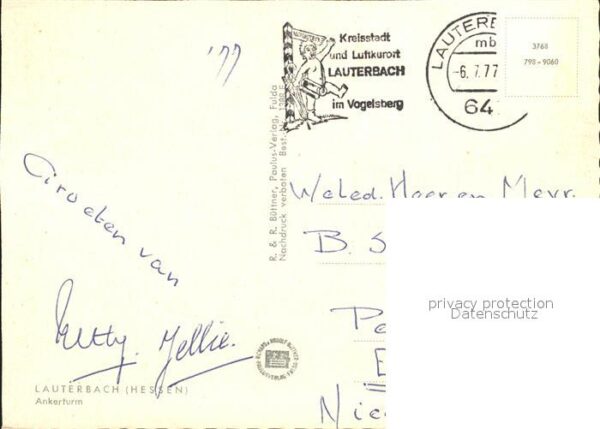 '77
Kreisstadt
und Luftkurort
LAUTERBACH
im Vogelsberg
LAUTERB
mb
-6.7.77
64
3768
798-9060
R. & R. Büttner, Paulus-Verlag, Fulda
Nachdruck verboten Best.-Nr.
Groeten van
Jellie.
Weled. Heer en Mevr.
B. S
Pa
E
Nie
privacy protection
Datenschutz
LAUTERBACH (HESSEN)
Ankerturm